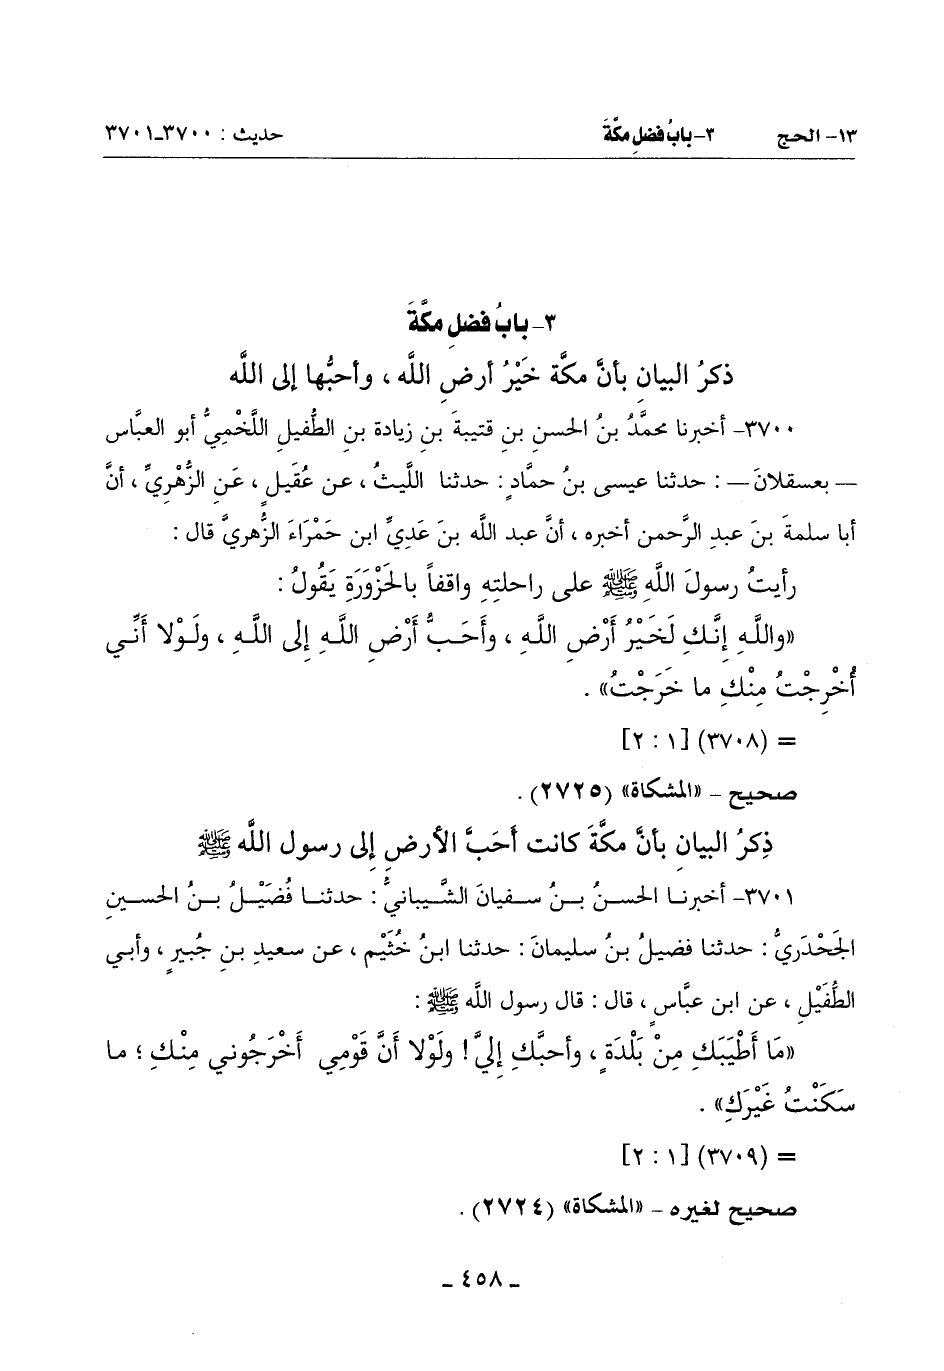 ١٣- الحج ٣- بابُ فضلِ مكَّةَ حديث : ٣٧٠٠-٣٧٠١
٣- بابُ فضلِ مكَّةَ
ذكرُ البيان بأنَّ مكَّة خَيْرُ أرضِ اللَّه ، وأحبُّها إلى اللَّه
٣٧٠٠- أخبرنا محمَّدُ بنُ الحسنِ بنِ قتيبةَ بنِ زيادة بنِ الطُّفيلِ اللَّخْمِيُّ أبو العبَّاس
— بعسقلانَ — : حدثنا عيسى بنُ حمَّادٍ : حدثنا اللَّيثُ ، عن عُقَيلٍ ، عَنِ الزُّهْرِيِّ ، أنَّ
أبا سلمةَ بنَ عبدِ الرَّحمن أخبره ، أنَّ عبد اللَّه بنَ عَدِيِّ ابن حَمْرَاءَ الزُّهريَّ قال :
رأيتُ رسولَ اللَّهِ ﷺ على راحلتِهِ واقفاً بالحَزْوَرَةِ يَقُولُ :
«واللَّهِ إنَّكِ لَخَيْرُ أَرْضِ اللَّه ، وأَحَبُّ أَرْضِ اللَّهِ إلى اللَّهِ ، ولَوْلا أَنِّي
أُخْرِجْتُ مِنْكِ ما خَرَجْتُ» .
= (٣٧٠٨) [١ : ٢]
صحيح - «المشكاة» (٢٧٢٥) .
ذِكرُ البيانِ بأنَّ مكَّةَ كانت أَحَبَّ الأرضِ إلى رسول اللَّه ﷺ
٣٧٠١- أخبرنا الحسنُ بنُ سفيانَ الشَّيبانيُّ : حدثنا فُضَيْلُ بنُ الحسينِ
الجَحْدَرِيُّ : حدثنا فضيلُ بنُ سليمانَ : حدثنا ابنُ خُثَيْمٍ ، عن سعيدِ بنِ جُبيرٍ ، وأبي
الطُّفَيْلِ ، عن ابن عبَّاسٍ ، قال : قال رسول اللَّه ﷺ :
«مَا أَطْيَبَكِ مِنْ بَلْدَةٍ ، وأحبَّكِ إليَّ ! ولَوْلا أَنَّ قَوْمِي أَخْرَجُوني مِنْكِ ؛ ما
سَكَنْتُ غَيْرَكِ» .
= (٣٧٠٩) [١ : ٢]
صحيح لغيره - «المشكاة» (٢٧٢٤) .
- ٤٥٨ -